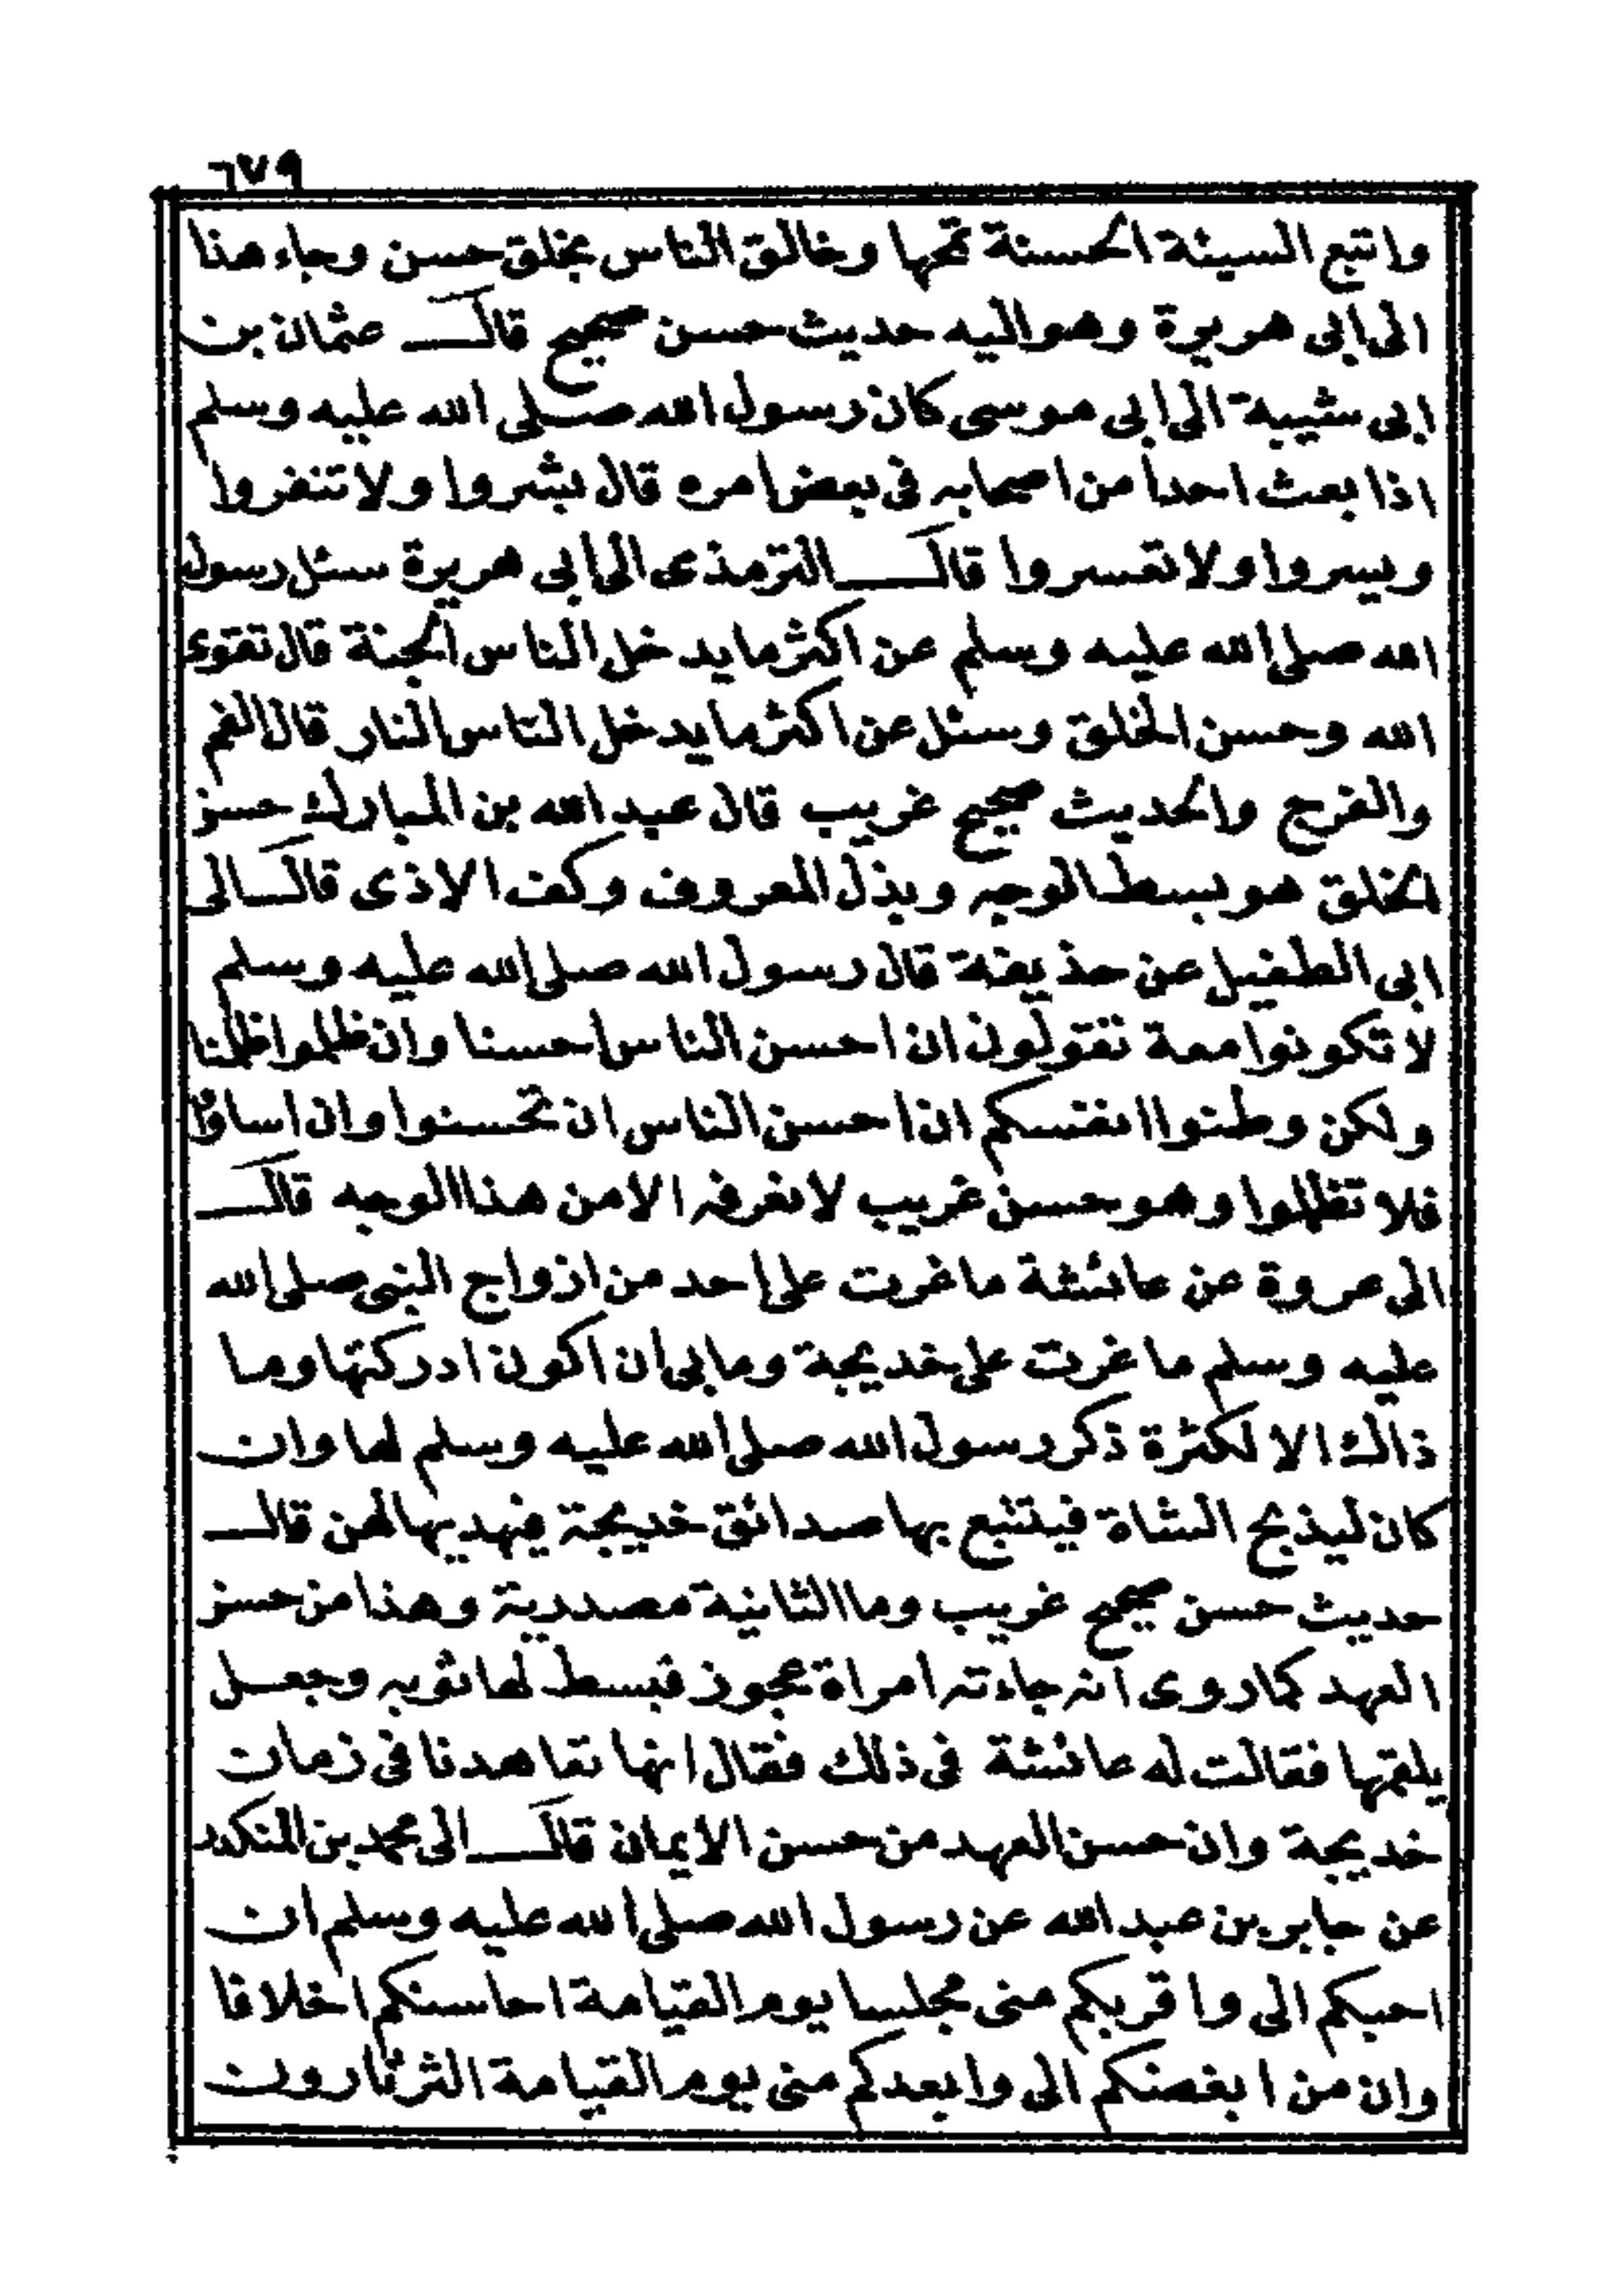 ٦٧٩
واتبع السيئة الحسنة تمحها وخالق الناس بخلق حسن وجاء هذا
الى ابى هريرة وهو اليه حديث حسن صحيح قال عثمان بن
ابى شيبة الى ابى موسى كان رسول الله صلى الله عليه وسلم
اذا بعث احدا من اصحابه فى بعض امره قال بشروا ولا تنفروا
ويسروا ولا تعسروا قال الترمذى الى ابى هريرة سئل رسول
الله صلى الله عليه وسلم عن اكثر ما يدخل الناس الجنة قال تقوى
الله وحسن الخلق وسئل عن اكثر ما يدخل الناس النار قال الفم
والفرج والحديث صحيح غريب قال عبد الله بن المبارك حسن
الخلق هو بسط الوجه وبذل المعروف وكف الاذى قال الى
ابى الطفيل عن حذيفة قال رسول الله صلى الله عليه وسلم
لا تكونوا امعة تقولون ان احسن الناس احسنا وان ظلموا ظلمنا
ولكن وطنوا انفسكم ان احسن الناس ان تحسنوا وان اساؤا
فلا تظلموا وهو حسن غريب لا نعرفه الا من هذا الوجه قال
الى عروة عن عائشة ما غرت على احد من ازواج النبى صلى الله
عليه وسلم ما غرت على خديجة وما بى ان اكون ادركتها وما
ذالك الا لكثرة ذكر رسول الله صلى الله عليه وسلم لها وان
كان ليذبح الشاة فيتتبع بها صدائق خديجة فيهديها لهن قال
حديث حسن صحيح غريب وما الثانية مصدرية وهذا من حسن
العهد كما روى انه جاءته امراة عجوز فبسط لها ثوبه وجعل
يلقمها فقالت له عائشة فى ذلك فقال انها تعاهدنا فى زمان
خديجة وان حسن العهد من حسن الايمان قال الى محمد بن المنكدر
عن جابر بن عبد الله عن رسول الله صلى الله عليه وسلم ان
احبكم الى واقربكم منى مجلسا يوم القيامة احاسنكم اخلاقا
وان من ابغضكم الى وابعدكم منى يوم القيامة الثرثارون